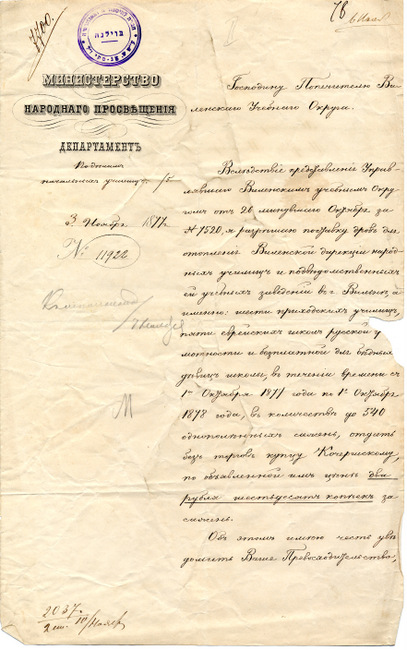 7700.
78
בוילנה
МИНИСТЕРСТВО
НАРОДНАГО ПРОСВѢЩЕНІЯ
ДЕПАРТАМЕНТЪ
По
начальныхъ училищъ
3 Ноября 1877
№ 11922
М
2037
10/Ноября
Господину Попечителю Ви-
ленскаго Учебнаго Округа.
Вслѣдствіе представленія Управ-
лявшаго Виленскимъ учебнымъ Окру-
гомъ отъ 26 минувшаго Октября за
№ 7520, я разрѣшаю поставку дровъ для
отопленія Виленской дирекціи народ-
ныхъ училищъ и подвѣдомственныхъ
ей учебныхъ заведеній въ г. Вильнѣ, а
именно: шести приходскихъ училищъ,
пяти еврейскихъ школъ русской
мотности и безплатной для бѣдныхъ
дѣвицъ школы, въ теченіи времени съ
1го Октября 1877 года по 1е Октября
1878 года, въ количествѣ до 540
однополѣнныхъ сажень, отдать
безъ торговъ купцу Кочержскому,
по объявленной имъ цѣнѣ два
рубля шестьдесятъ копѣекъ за
сажень.
Объ этомъ имѣю честь увѣ-
домить Ваше Превосходительство,